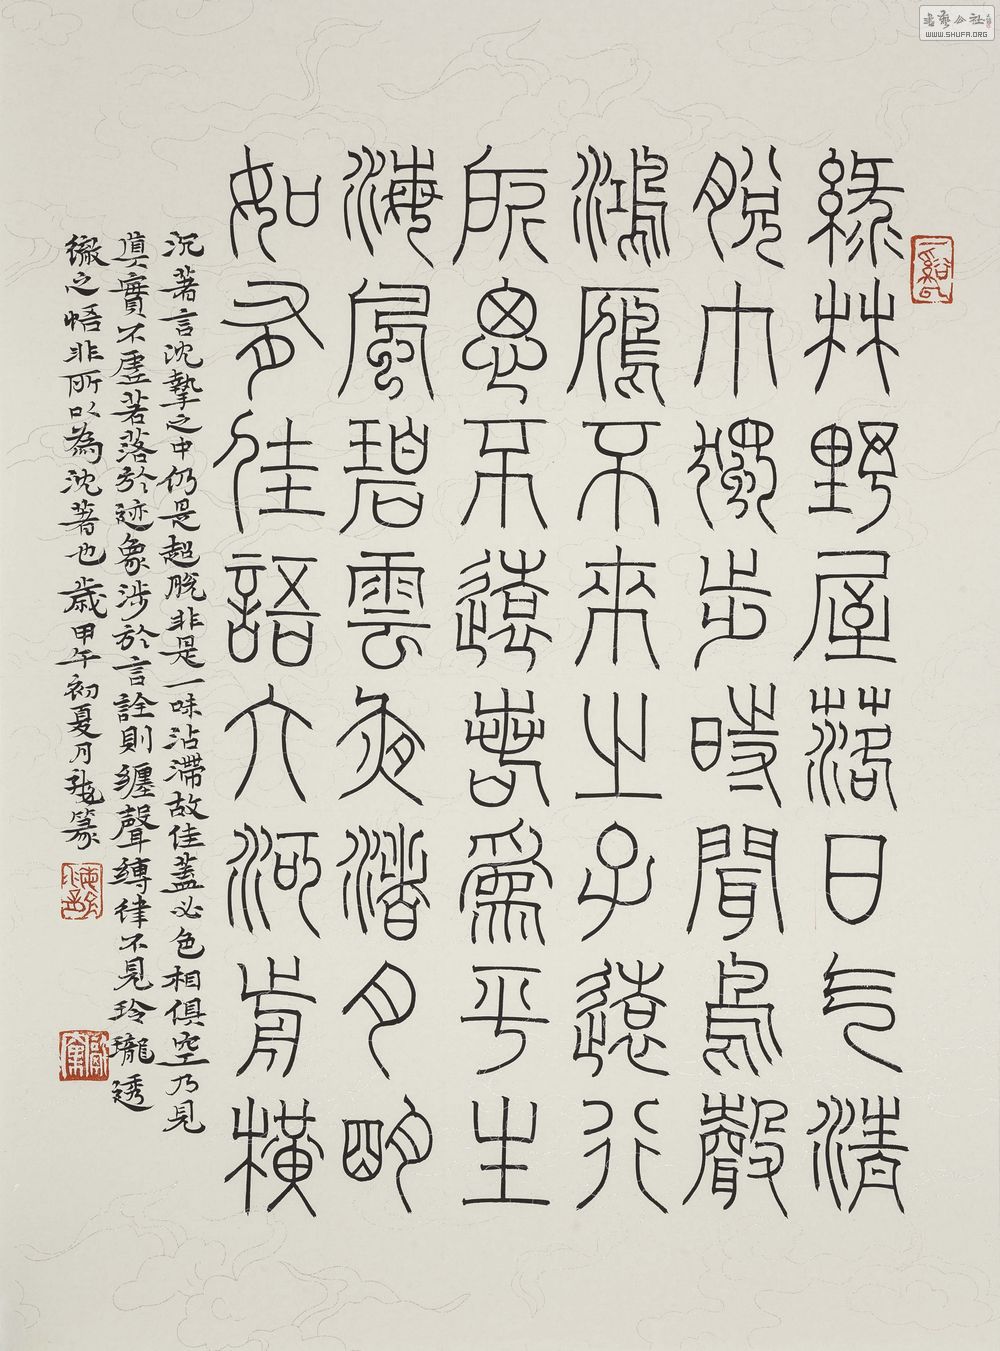 書藝公社
WWW.SHUFA.ORG
綠林野屋落日气清
脫巾獨步時聞鳥聲
鴻雁不來之子遠行
所思不遠若為平生
海風碧雲夜渚月明
如有佳語大河前橫
沉著言沈摯之中仍是超脫非是一味沾滯故佳蓋必色相俱空乃見
真實不虛若落於迹象涉於言詮則纏聲縛律不見玲瓏透
徹之悟非所以為沈著也歲甲午初夏月篆